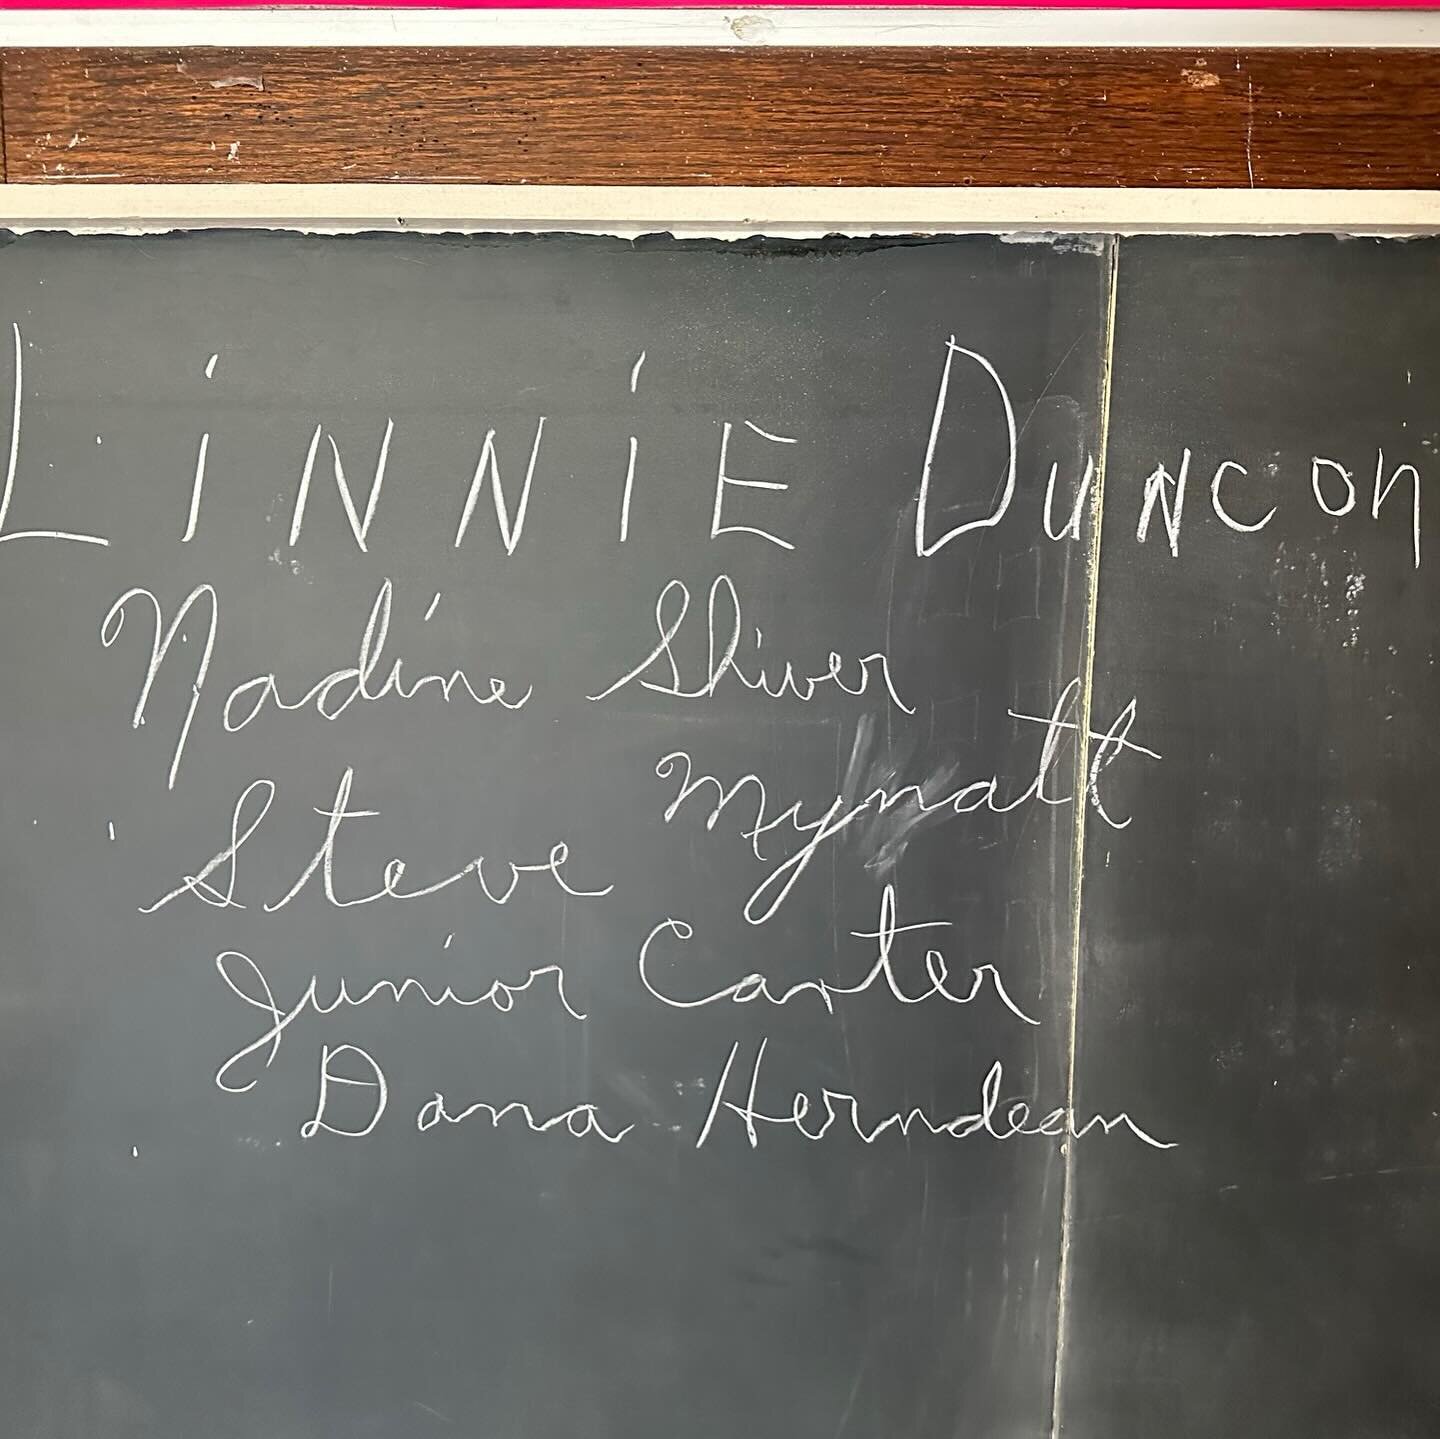 LiNNiE DuNcon
Nadine Shiver
Steve Mynatt
Junior Carter
Dana Herndean